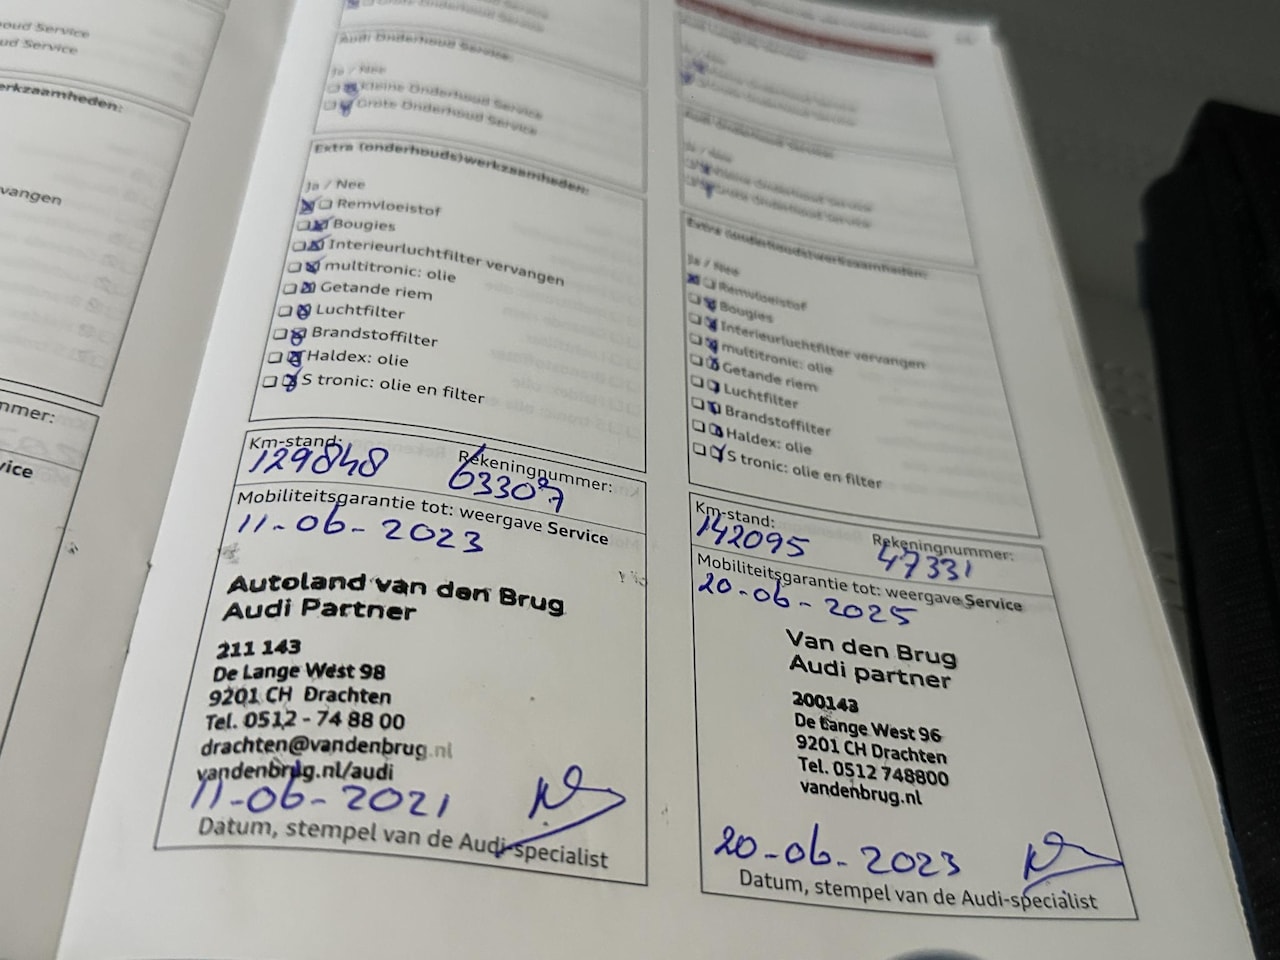 oud Service
ud Service
erkzaamheden:
vangen
mmer:
vice
Grote Onderhoud Service
Audi Onderhoud Service:
Ja / Nee
Kleine Onderhoud Service
Grote Onderhoud Service
Extra (onderhouds)werkzaamheden:
Ja / Nee
Remvloeistof
Bougies
Interieurluchtfilter vervangen
multitronic: olie
Getande riem
Luchtfilter
Brandstoffilter
Haldex: olie
S tronic: olie en filter
Km-stand: Rekeningnummer:
129848 63307
Mobiliteitsgarantie tot: weergave Service
11-06-2023
Autoland van den Brug
Audi Partner
211 143
De Lange West 98
9201 CH Drachten
Tel. 0512 - 74 88 00
drachten@vandenbrug.nl
vandenbrug.nl/audi
11-06-2021
Datum, stempel van de Audi-specialist
Audi Onderhoud Service:
Ja / Nee
Kleine Onderhoud Service
Grote Onderhoud Service
Extra (onderhouds)werkzaamheden:
Ja / Nee
Remvloeistof
Bougies
Interieurluchtfilter vervangen
multitronic: olie
Getande riem
Luchtfilter
Brandstoffilter
Haldex: olie
S tronic: olie en filter
Km-stand: Rekeningnummer:
142095 47331
Mobiliteitsgarantie tot: weergave Service
20-06-2025
Van den Brug
Audi partner
200143
De Lange West 96
9201 CH Drachten
Tel. 0512 748800
vandenbrug.nl
20-06-2023
Datum, stempel van de Audi-specialist